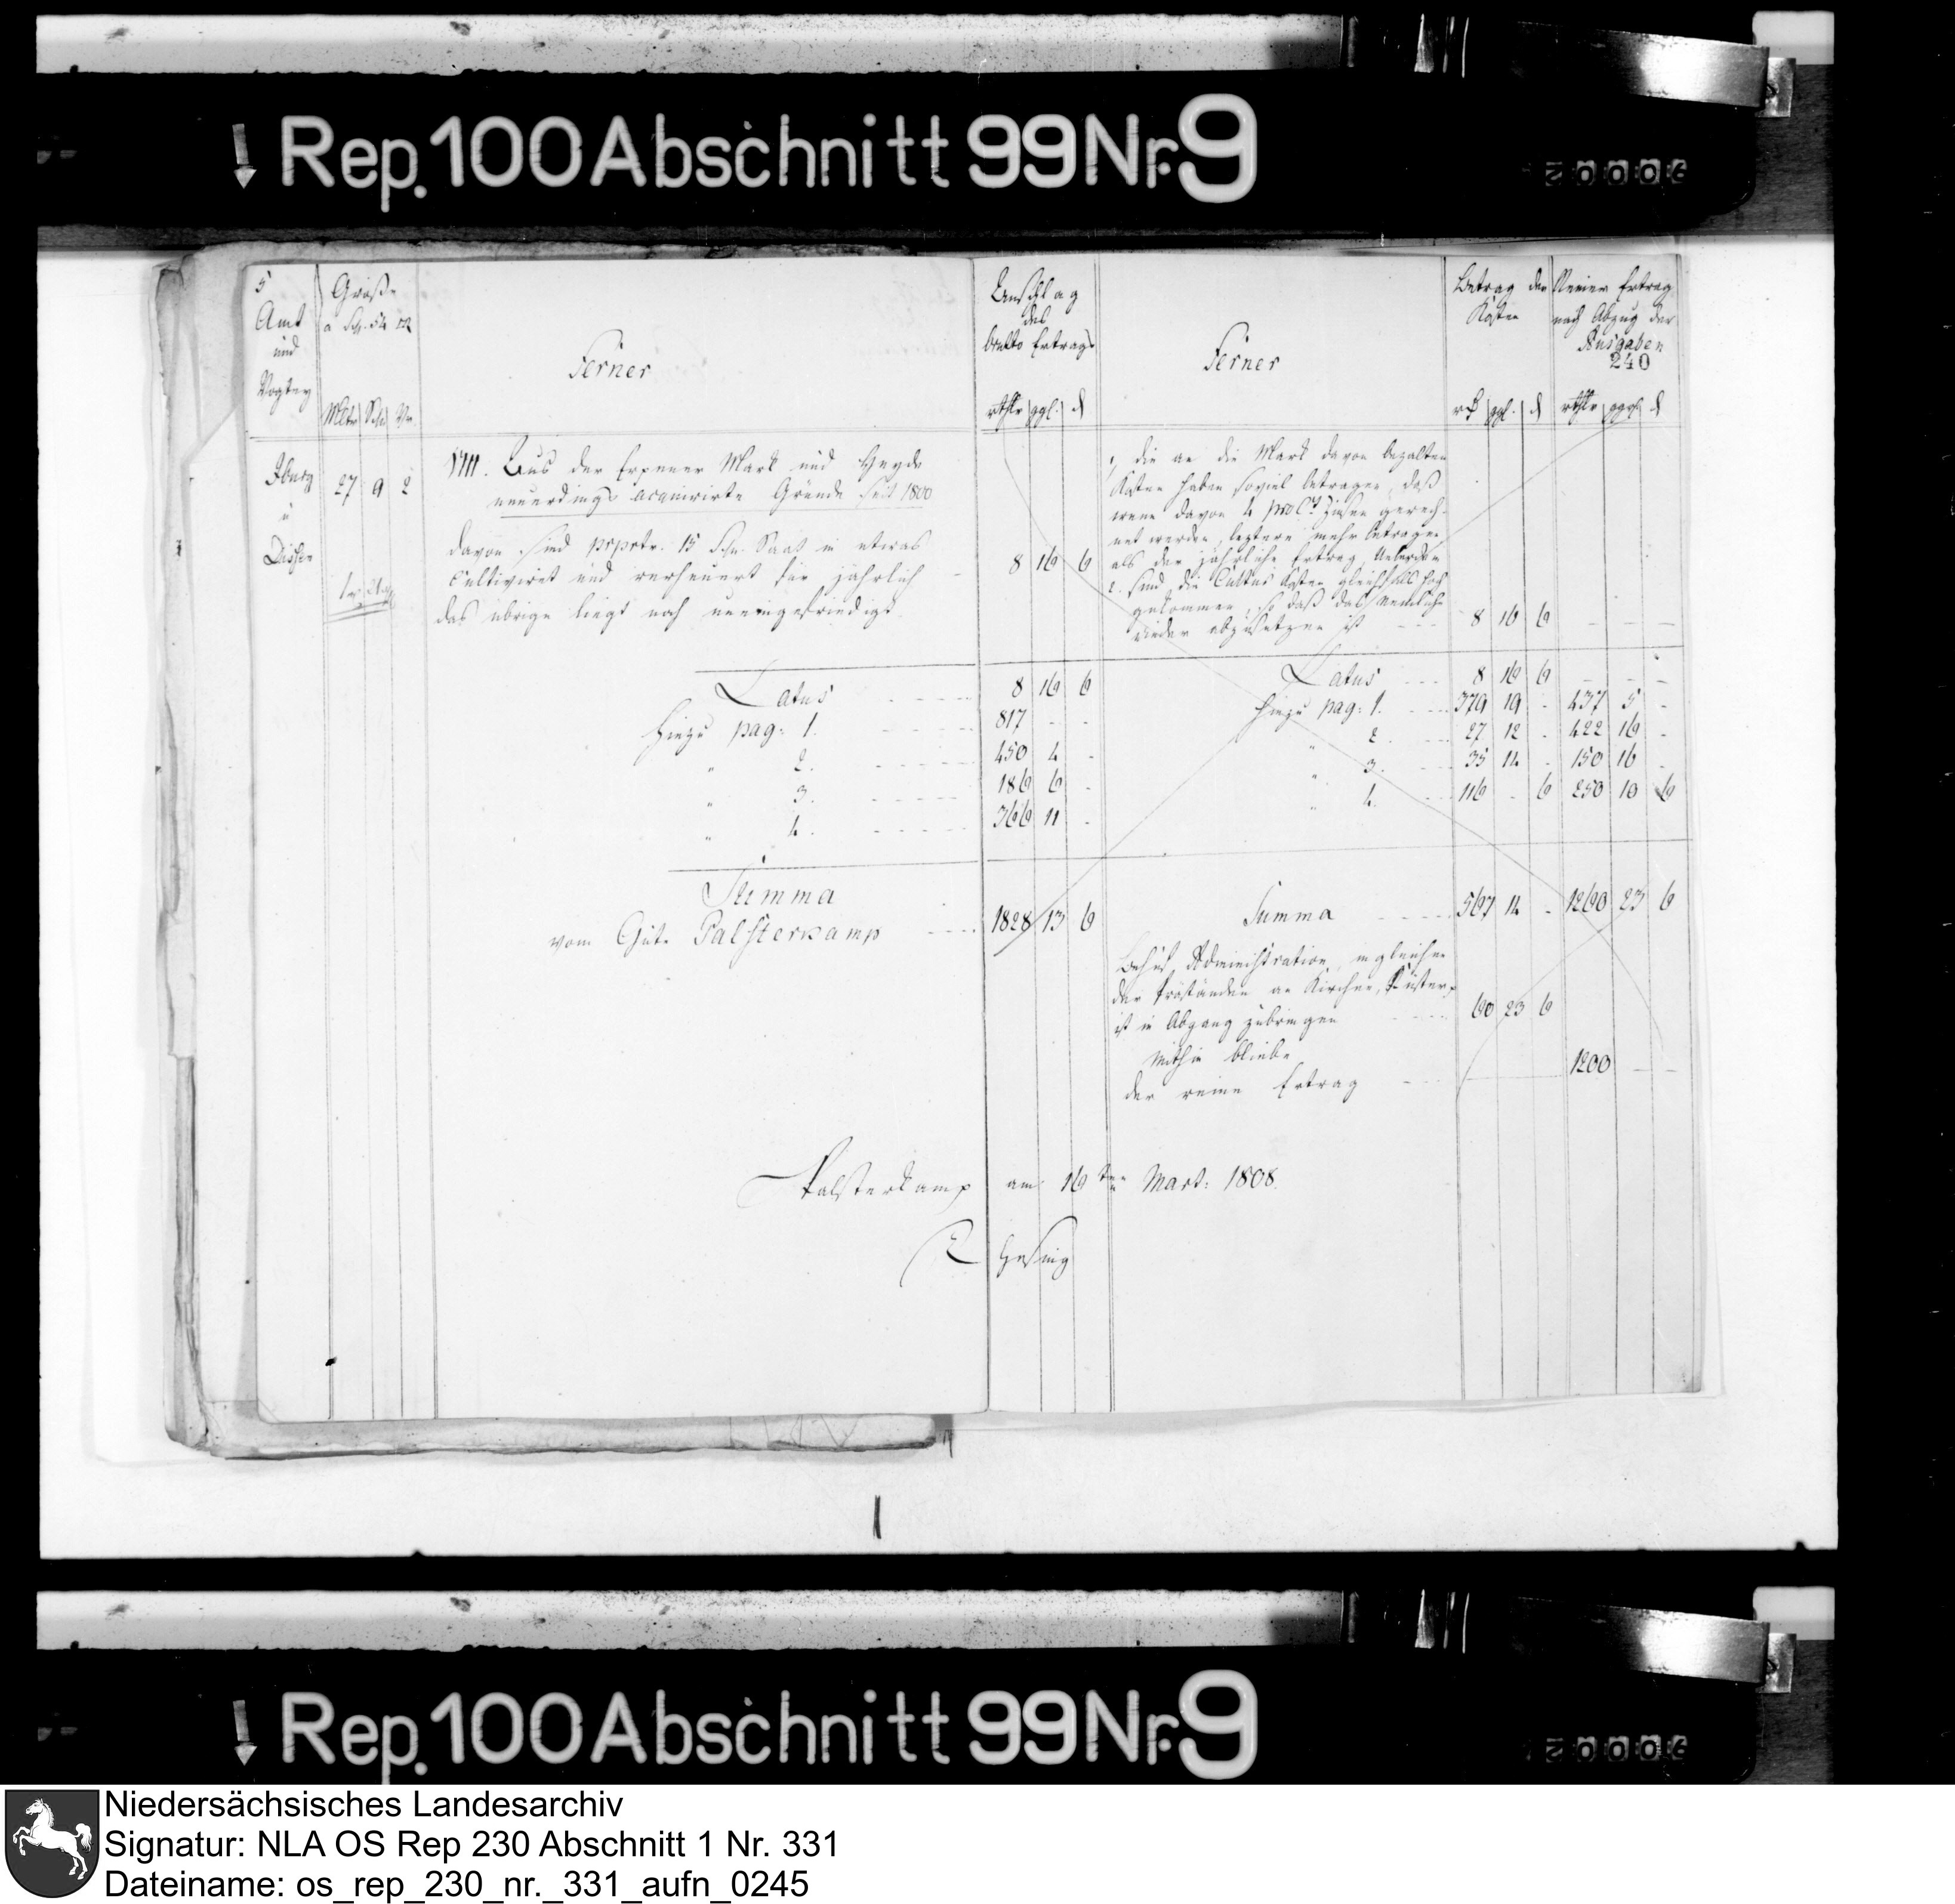 Rep. 100 Abschnitt 99 Nr. 9
5
Amt
und
Vogtey
Größe
a Sch. 54 □R
Mltr Sch Vr.
Ferner
Anschlag
des
brutto Ertrags
rthlr ggl. d
Ferner
Betrag der
Kosten
rt ggl. d
Reiner Ertrag
nach Abzug der
Ausgaben
240
rthlr ggl. d
Iburg
u
Dissen
27 9 2
VIII. Aus der Erpener Mark und Heyde
neuerdings acquirirte Gründe seit 1800
davon sind 15 Sch. Saat in etwas
cultivirt und verheuert für jährlich
das übrige liegt noch uneingefriedigt
8 16 6
1, die an die Mark davon bezalten
Kosten haben soviel betragen, daß
wenn davon 4 pro Ct Zinsen gerech-
net werden, leztere mehr betragen
als der jährliche Ertrag, Ueberdem
2. sind die Culturs Kosten gleichfals hoch
gekommen, so daß das nemliche
wieder abzusetzen ist 8 16 6
Latus 8 16 6
Hiezu pag: 1. 817 - -
" 2. 450 4 -
" 3. 186 6 -
" 4. 366 11 -
Latus 8 16 6 - - -
Hiezu pag: 1. 379 19 - 437 5 -
" 2. 27 12 - 422 16 -
" 3. 35 14 - 150 16 -
" 4. 116 - 6 250 10 6
Summa
vom Gute Palsterkamp 1828 13 6
Summa 567 14 - 1260 23 6
Behuf Administration, ingleichen
der Prästanden an Kirchen, Küster p
ist in Abgang zubringen 60 23 6
Mithin bliebe
der reine Ertrag 1200 - -
Palsterkamp am 16ten Mart: 1808.
Rep. 100 Abschnitt 99 Nr. 9
Niedersächsisches Landesarchiv
Signatur: NLA OS Rep 230 Abschnitt 1 Nr. 331
Dateiname: os_rep_230_nr._331_aufn_0245